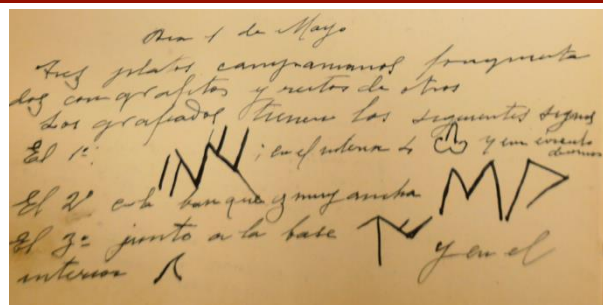 Dia 1 de Mayo
Tres platos campanianos fragmenta
dos con grafitos y restos de otros
Los grafiados tienen los siguientes signos
El 1º ; en el interior 4 y un circulo
El 2º en la banque y muy ancha
El 3º junto a la base y en el
interior